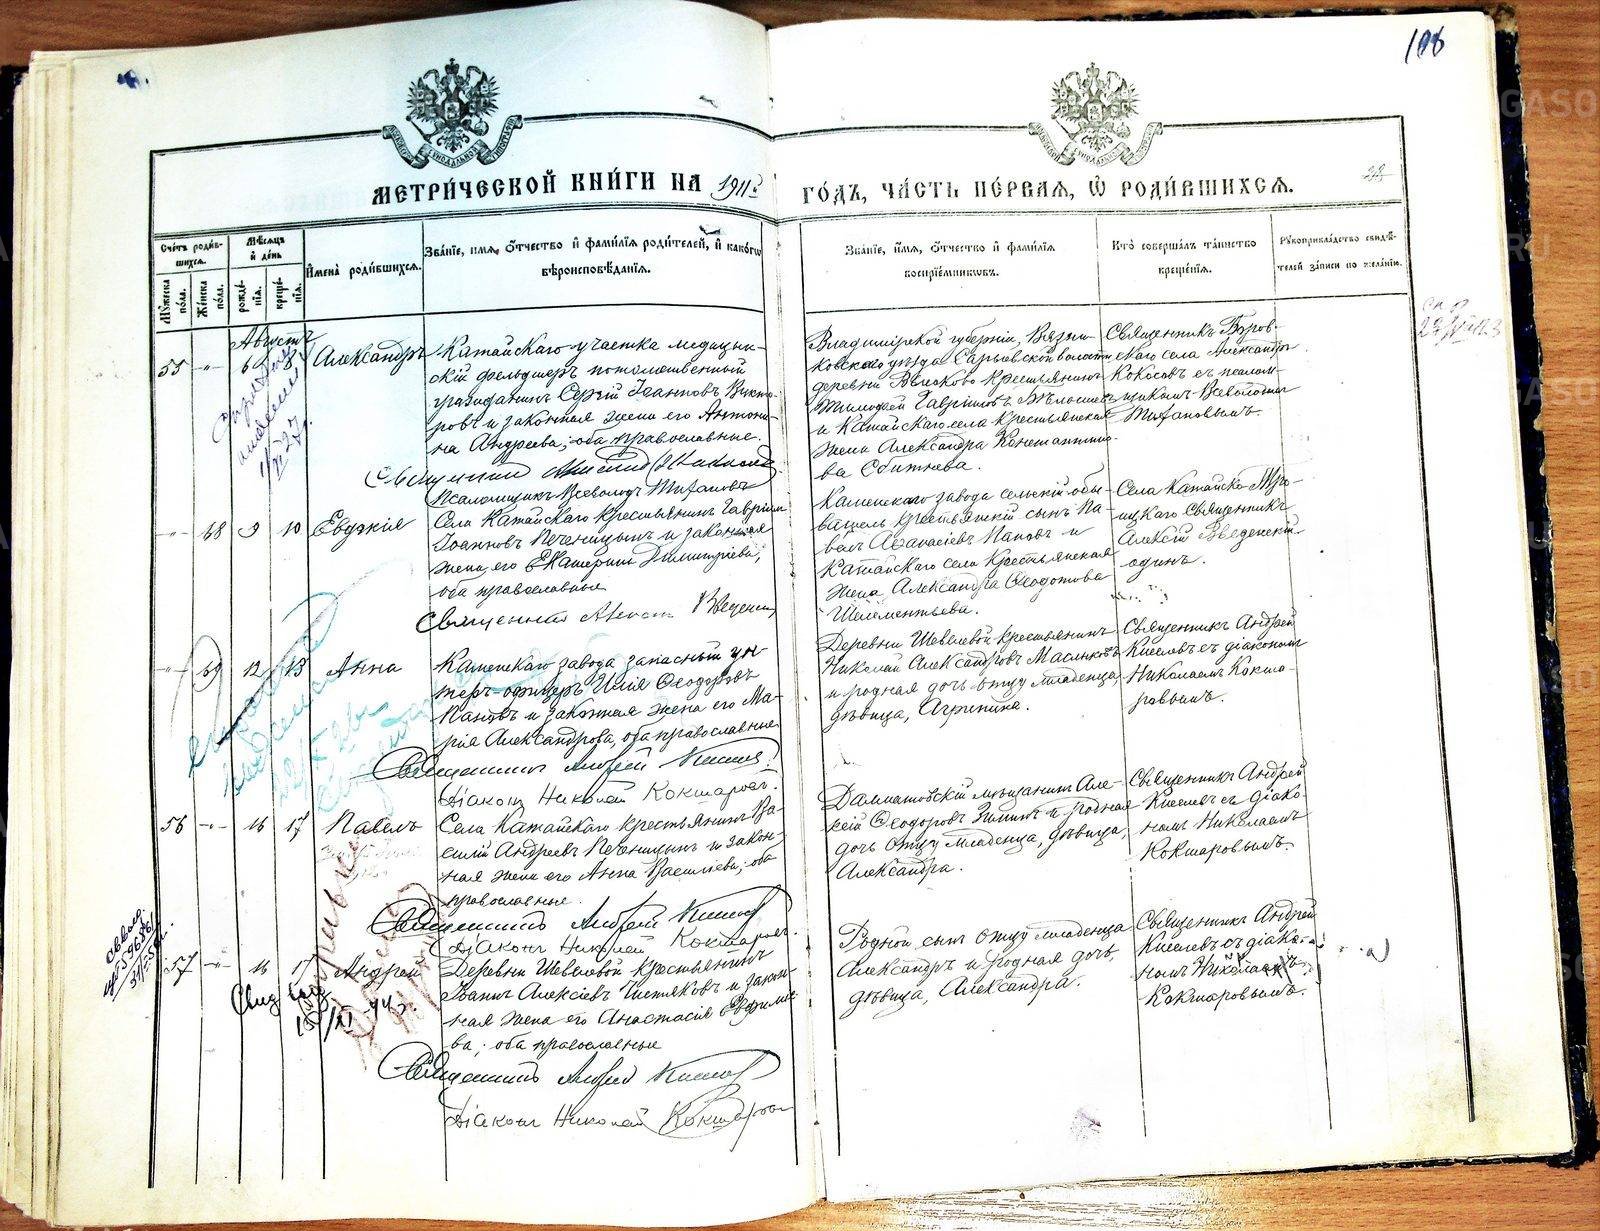 108
МЕТРИ́ЧЕСКОЙ КНИ́ГИ НА 1911й ГО́ДЪ, ЧА́СТЬ ПЕ́РВАЯ, Ѡ҆ РОДИ́ВШИХСѦ.
Сче́тъ роди́в-
шихсѧ.
Му́жеска по́ла.
Же́нска по́ла.
Мѣ́сѧцъ и҆ де́нь
рожде́-
нїѧ.
креще́-
нїѧ.
И҆мена̀ роди́вшихсѧ.
Зва́нїе, и҆́мѧ, ѻ҆́тчество и҆ фами́лїѧ роди́телей, и҆ како́гѡ
вѣроисповѣ́данїѧ.
Зва́нїе, и҆́мѧ, ѻ҆́тчество и҆ фами́лїѧ
воспрїе́мникѡвъ.
Кто̀ соверша́лъ та́инство
креще́нїѧ.
Рꙋкоприкла́дство свидѣ́-
телей за́писи по жела́нїю.
Августъ
55 -"- 6 8 Александръ
Катайскаго участка медицин-
скій фельдшеръ потомственный
гражданинъ Сергій Іоанновъ Викто-
ровъ и законная жена его Антони-
на Андреева, оба православные.
Псаломщикъ Всеволодъ Титановъ
Владимірской губерніи, Вязни-
ковскаго уѣзда Сарыевской волости
деревни Высоково крестьянинъ
Тимофей Гавріиловъ
и Катайскаго села крестьянская
жена Александра Константино-
ва Сбитнева.
Священникъ Боров-
скаго села Александръ
Кокосовъ съ псалом-
щикомъ Всеволодомъ
Титановымъ.
-"- 68 9 10 Евдокія
Села Катайскаго крестьянинъ Гавріилъ
Іоанновъ Печеницынъ и законная
жена его Екатерина Димитріева,
оба православные
Священникъ Алексій Введенскій
Каменскаго завода сельскій обы-
ватель крестьянскій сынъ Па-
велъ Аѳанасіевъ Пановъ и
Катайскаго села крестьянская
жена Александра Ѳеодотова
Шелементьева.
Села Катайско-Тро-
ицкаго священникъ
Алексій Введенскій
одинъ.
-"- 69 12 13 Анна
Каменскаго завода запасный ун-
теръ-офицеръ Илія Ѳеодоровъ
Пановъ и законная жена его Ма-
рія Александрова, оба православные
Священникъ Андрей Киселевъ
Діаконъ Николай Кокшаровъ.
Деревни Шевелевой крестьянинъ
Николай Александровъ Масликовъ
и родная дочь отцу младенца,
дѣвица, Агрипина.
Священникъ Андрей
Киселевъ съ діакономъ
Николаемъ Кокша-
ровымъ.
56 -"- 16 17 Павелъ
Села Катайскаго крестьянинъ Ва-
силій Андреевъ Печеницынъ и закон-
ная жена его Анна Васильева, оба
православные.
Священникъ Андрей Киселевъ
Діаконъ Николай Кокшаровъ.
Далматовскій мѣщанинъ Але-
ксій Ѳеодоровъ и родная
дочь отцу младенца, дѣвица,
Александра.
Священникъ Андрей
Киселевъ съ діако-
номъ Николаемъ
Кокшаровымъ.
57 -"- 16 17 Андрей
Деревни Шевелевой крестьянинъ
Іоаннъ Алексіевъ Чистяковъ и закон-
ная жена его Анастасія Евфимі-
ва, оба православные
Священникъ Андрей Киселевъ
Діаконъ Николай Кокшаровъ
Родной сынъ отцу младенца
Александръ и родная дочь,
дѣвица, Александра.
Священникъ Андрей
Киселевъ съ діако-
номъ Николаемъ
Кокшаровымъ.